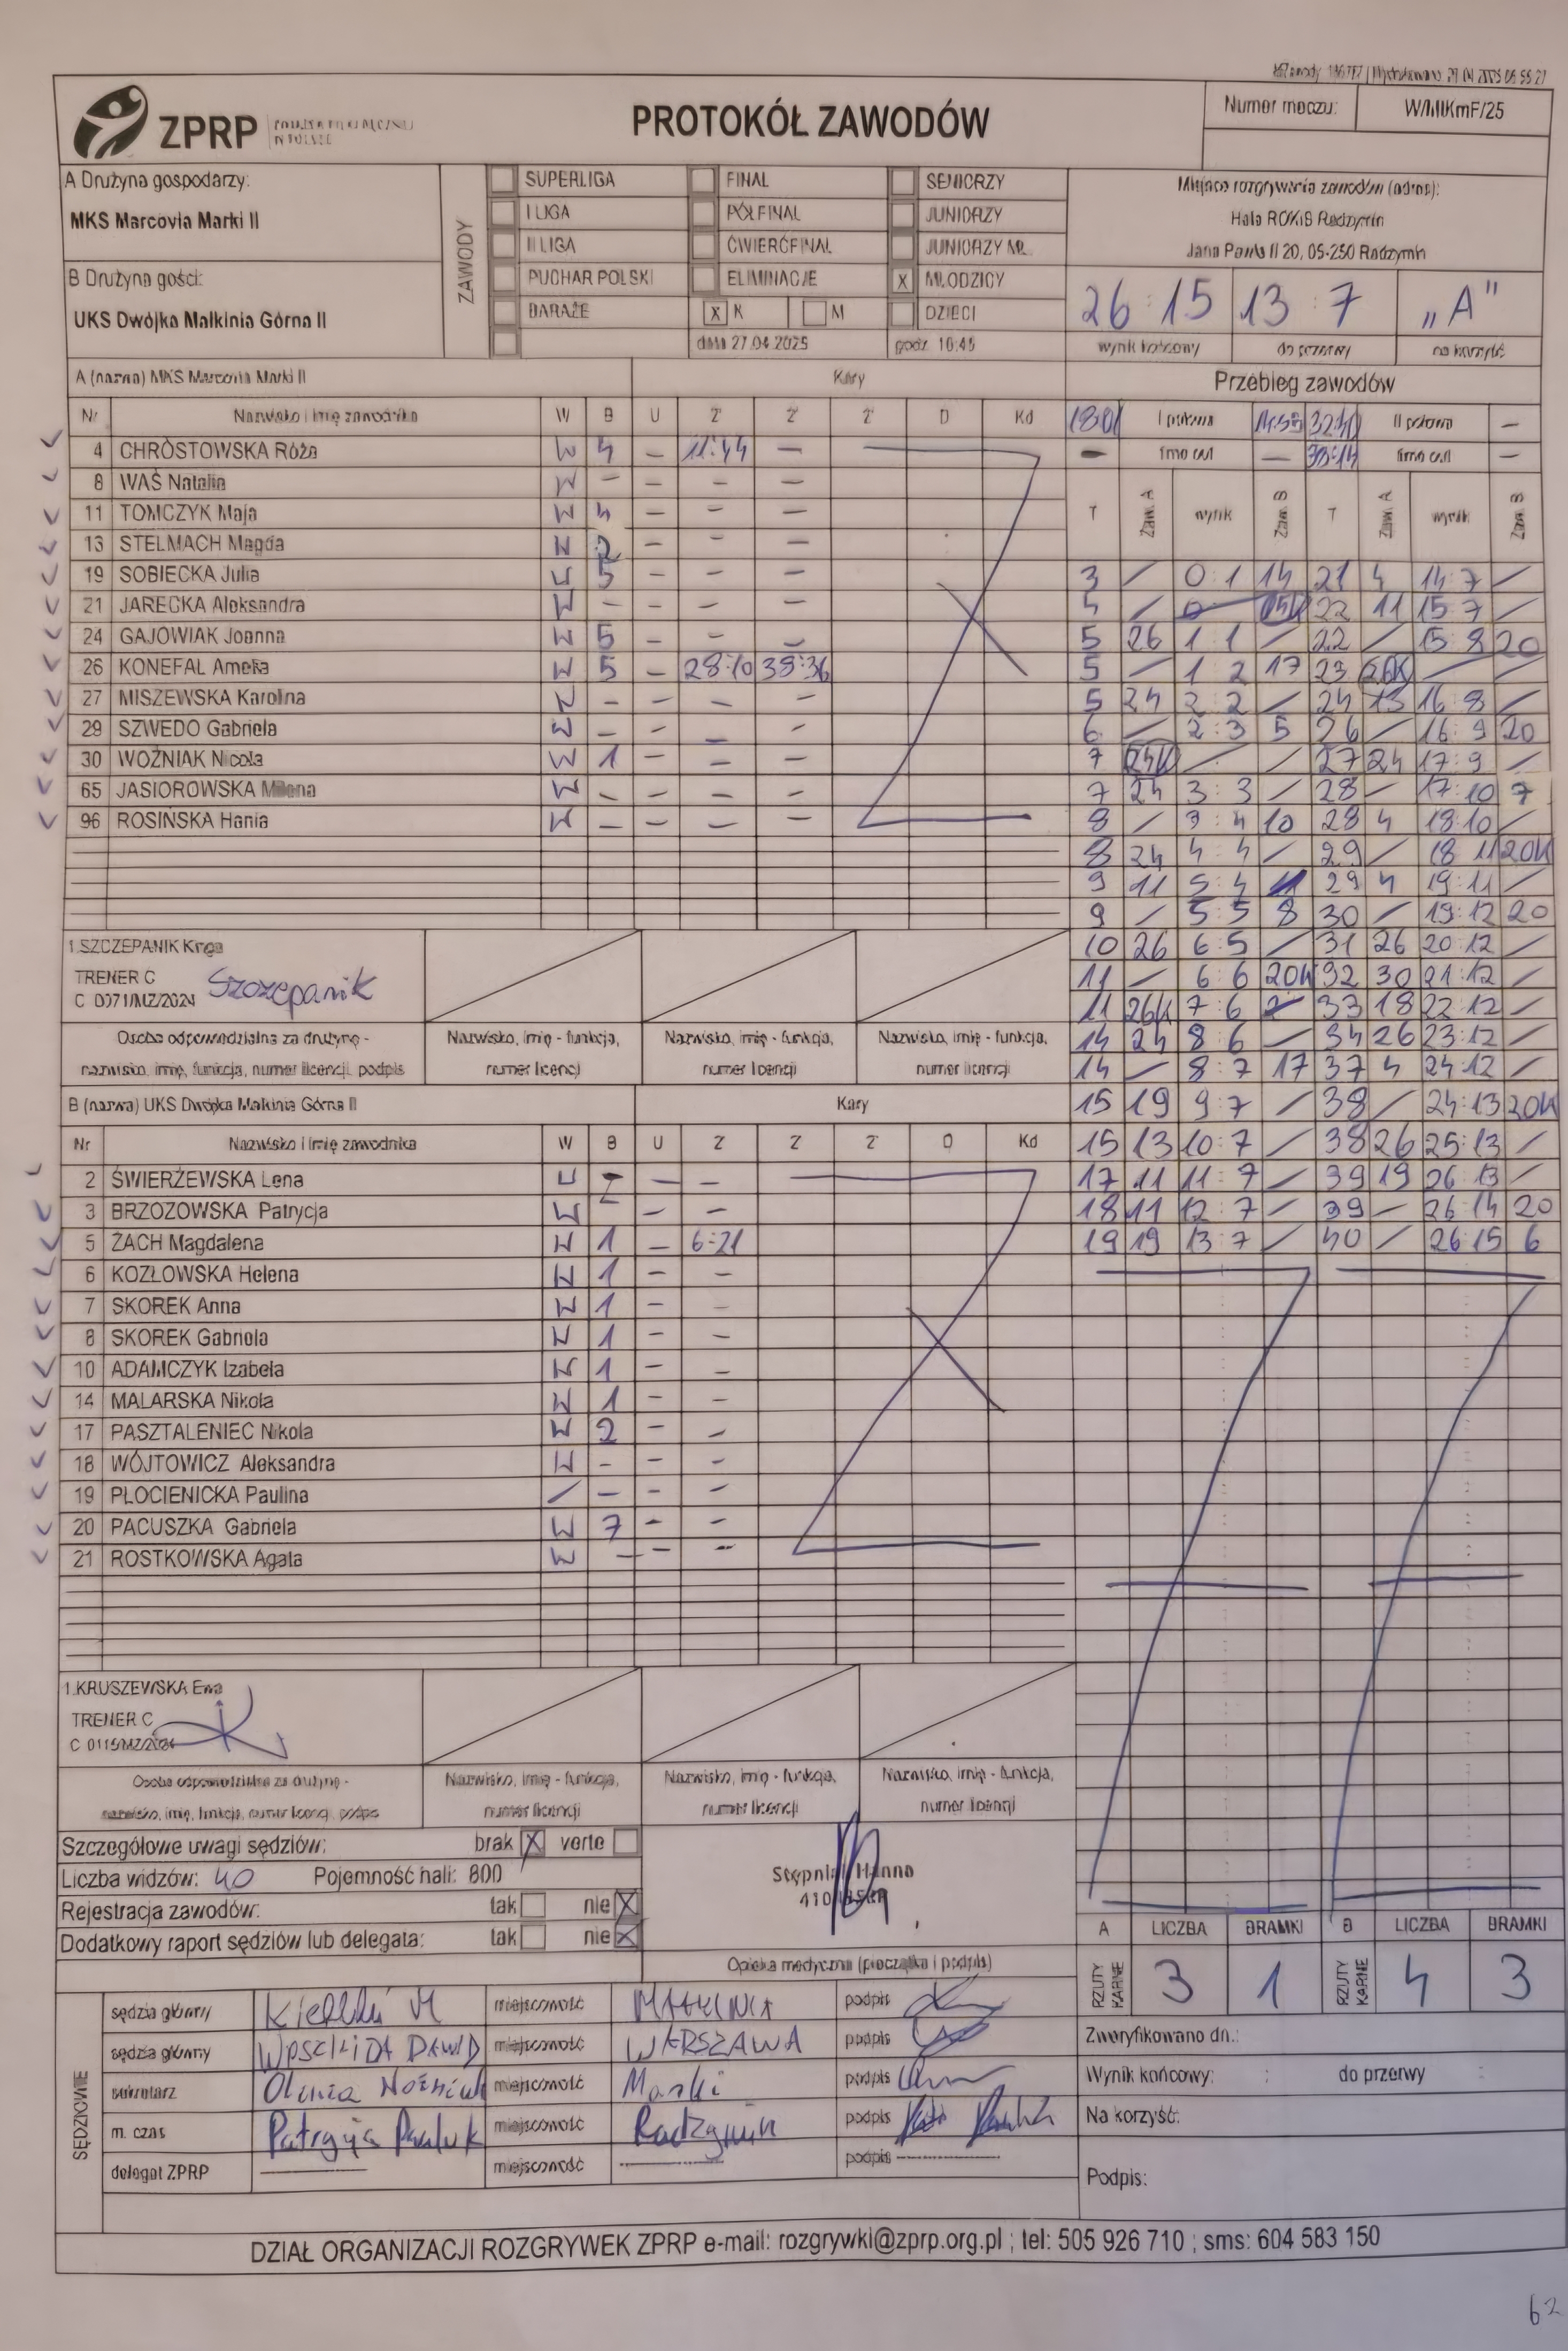 ZPRP
PROTOKÓŁ ZAWODÓW
Numer meczu: W/MłKmF/25
A Drużyna gospodarzy:
MKS Marcovia Marki II
B Drużyna gości:
UKS Dwójka Małkinia Górna II
ZAWODY
SUPERLIGA FINAŁ SENIORZY
I LIGA PÓŁFINAŁ JUNIORZY
II LIGA ĆWIERĆFINAŁ JUNIORZY MŁ.
PUCHAR POLSKI ELIMINACJE X MŁODZICY
BARAŻE X K M DZIECI
data 27.04.2025 godz. 16:45
Miejsce rozgrywania zawodów (adres):
Hala ROKiS Radzymin
Jana Pawła II 20, 05-250 Radzymin
26:15 13:7 „A"
wynik końcowy do przerwy na korzyść
A (nazwa) MKS Marcovia Marki II Kary
Nr Nazwisko i imię zawodnika W B U 2' 2' 2' D Kd
4 CHRÓSTOWSKA Róża W 4 - 11:44 -
8 WAŚ Natalia W - - - -
11 TOMCZYK Maja W 4 - - -
13 STELMACH Magda W 2 - - -
19 SOBIECKA Julia W 5 - - -
21 JARECKA Aleksandra W - - - -
24 GAJOWIAK Joanna W 5 - - -
26 KONEFAŁ Amelia W 5 - 28:10 38:36
27 MISZEWSKA Karolina W - - - -
29 SZWEDO Gabriela W - - - -
30 WOŹNIAK Nicola W 1 - - -
65 JASIOROWSKA Milena W - - - -
96 ROSIŃSKA Hania W - - - -
1.SZCZEPANIK Kinga
TRENER C
C 0071/MZ/2024 Szczepanik
Osoba odpowiedzialna za drużynę - nazwisko, imię, funkcja, numer licencji, podpis
Nazwisko, imię - funkcja, numer licencji
Nazwisko, imię - funkcja, numer licencji
Nazwisko, imię - funkcja, numer licencji
B (nazwa) UKS Dwójka Małkinia Górna II Kary
Nr Nazwisko i imię zawodnika W B U 2' 2' 2' D Kd
2 ŚWIERŻEWSKA Lena W - - -
3 BRZOZOWSKA Patrycja W - - -
5 ŻACH Magdalena W 1 - 6:21
6 KOZŁOWSKA Helena W 1 - -
7 SKOREK Anna W 1 - -
8 SKOREK Gabriela W 1 - -
10 ADAMCZYK Izabela W 1 - -
14 MALARSKA Nikola W 1 - -
17 PASZTALENIEC Nikola W 2 - -
18 WÓJTOWICZ Aleksandra W - - -
19 PŁOCIENICKA Paulina / - - -
20 PACUSZKA Gabriela W 7 - -
21 ROSTKOWSKA Agata W - - -
1.KRUSZEWSKA Ewa
TRENER C
Osoba odpowiedzialna za drużynę - nazwisko, imię, funkcja, numer licencji, podpis
Nazwisko, imię - funkcja, numer licencji
Nazwisko, imię - funkcja, numer licencji
Nazwisko, imię - funkcja, numer licencji
Przebieg zawodów
I połowa II połowa -
- time out - 38:14 time out -
T Zaw. A wynik Zaw. B T Zaw. A wynik Zaw. B
3 / 0:1 14 21 4 14:7 /
4 / 22 11 15:7 /
5 26 1:1 / 22 / 15:8 20
5 / 1:2 17 23 26K / /
5 24 2:2 / 24 13 16:8 /
6 / 2:3 5 26 / 16:9 20
7 24K / / 27 24 17:9 /
7 24 3:3 / 28 / 17:10 7
8 / 3:4 10 28 4 18:10 /
8 24 4:4 / 29 / 18:11 20K
9 11 5:4 29 4 19:11 /
9 / 5:5 8 30 / 19:12 20
10 26 6:5 / 31 26 20:12 /
11 / 6:6 20K 32 30 21:12 /
11 26K 7:6 33 18 22:12 /
14 24 8:6 / 34 26 23:12 /
14 / 8:7 17 37 4 24:12 /
15 19 9:7 / 38 / 24:13 20K
15 13 10:7 / 38 26 25:13 /
17 11 11:7 / 39 19 26:13 /
18 11 12:7 / 39 / 26:14 20
19 19 13:7 / 40 / 26:15 6
Szczegółowe uwagi sędziów: brak X verte
Liczba widzów: 40 Pojemność hali: 800
Rejestracja zawodów: tak nie X
Dodatkowy raport sędziów lub delegata: tak nie X
Hanna
Opieka medyczna (pieczątka i podpis)
A LICZBA BRAMKI B LICZBA BRAMKI
RZUTY KARNE 3 1 RZUTY KARNE 4 3
SĘDZIOWIE
sędzia główny miejscowość MAŁKINIA podpis
sędzia główny DAWID miejscowość WARSZAWA podpis
sekretarz miejscowość Marki podpis
m. czas Patrycja miejscowość Radzymin podpis
delegat ZPRP miejscowość podpis
Zweryfikowano dn.:
Wynik końcowy: : do przerwy :
Na korzyść:
Podpis:
DZIAŁ ORGANIZACJI ROZGRYWEK ZPRP e-mail: rozgrywki@zprp.org.pl ; tel: 505 926 710 ; sms: 604 583 150
62